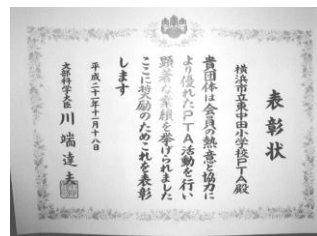 表彰状
横浜市立東中田小学校PTA殿
貴団体は会員の熱意と協力に
より優れたPTA活動を行い
顕著な業績を挙げられました
ここに奨励のためこれを表彰
します
平成二十一年十一月十八日
文部科学大臣 川端達夫